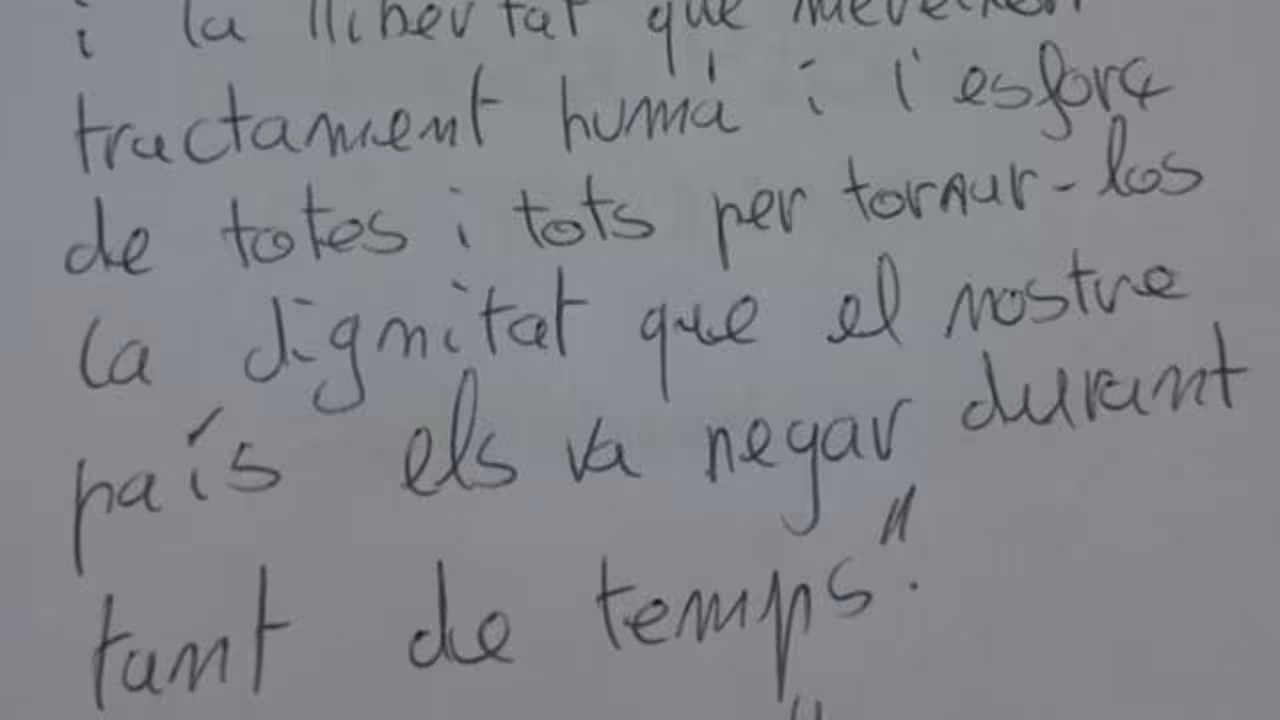 i la llibertat que mereixen
tractament humá i l'esforç
de totes i tots per tornar-los
la dignitat que el nostre
país els va negar durant
tant de temps".